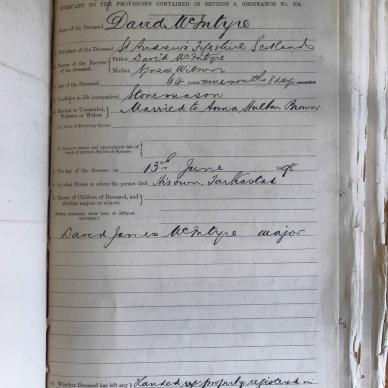 PURSUANT TO THE PROVISIONS CONTAINED IN SECTION 9, ORDINANCE No. 104.
Name of the Deceased David McIntyre
Birthplace of the Deceased St Andrews Fifeshire Scotland
Names of the Parents of the deceased. Father David McIntyre
Mother Agnes Wilson
Age of the Deceased 64 years nine months 8 days
Condition in life (occupation) Stonemason
Married or Unmarried, Widower or Widow Married to Anna Brown
The day of the decease: on 13th June 1898
At what House or where the person died His own, Tarkastad
Names of Children of Deceased, and whether majors or minors.
David James McIntyre major
Whether Deceased has left any Landed property registered in